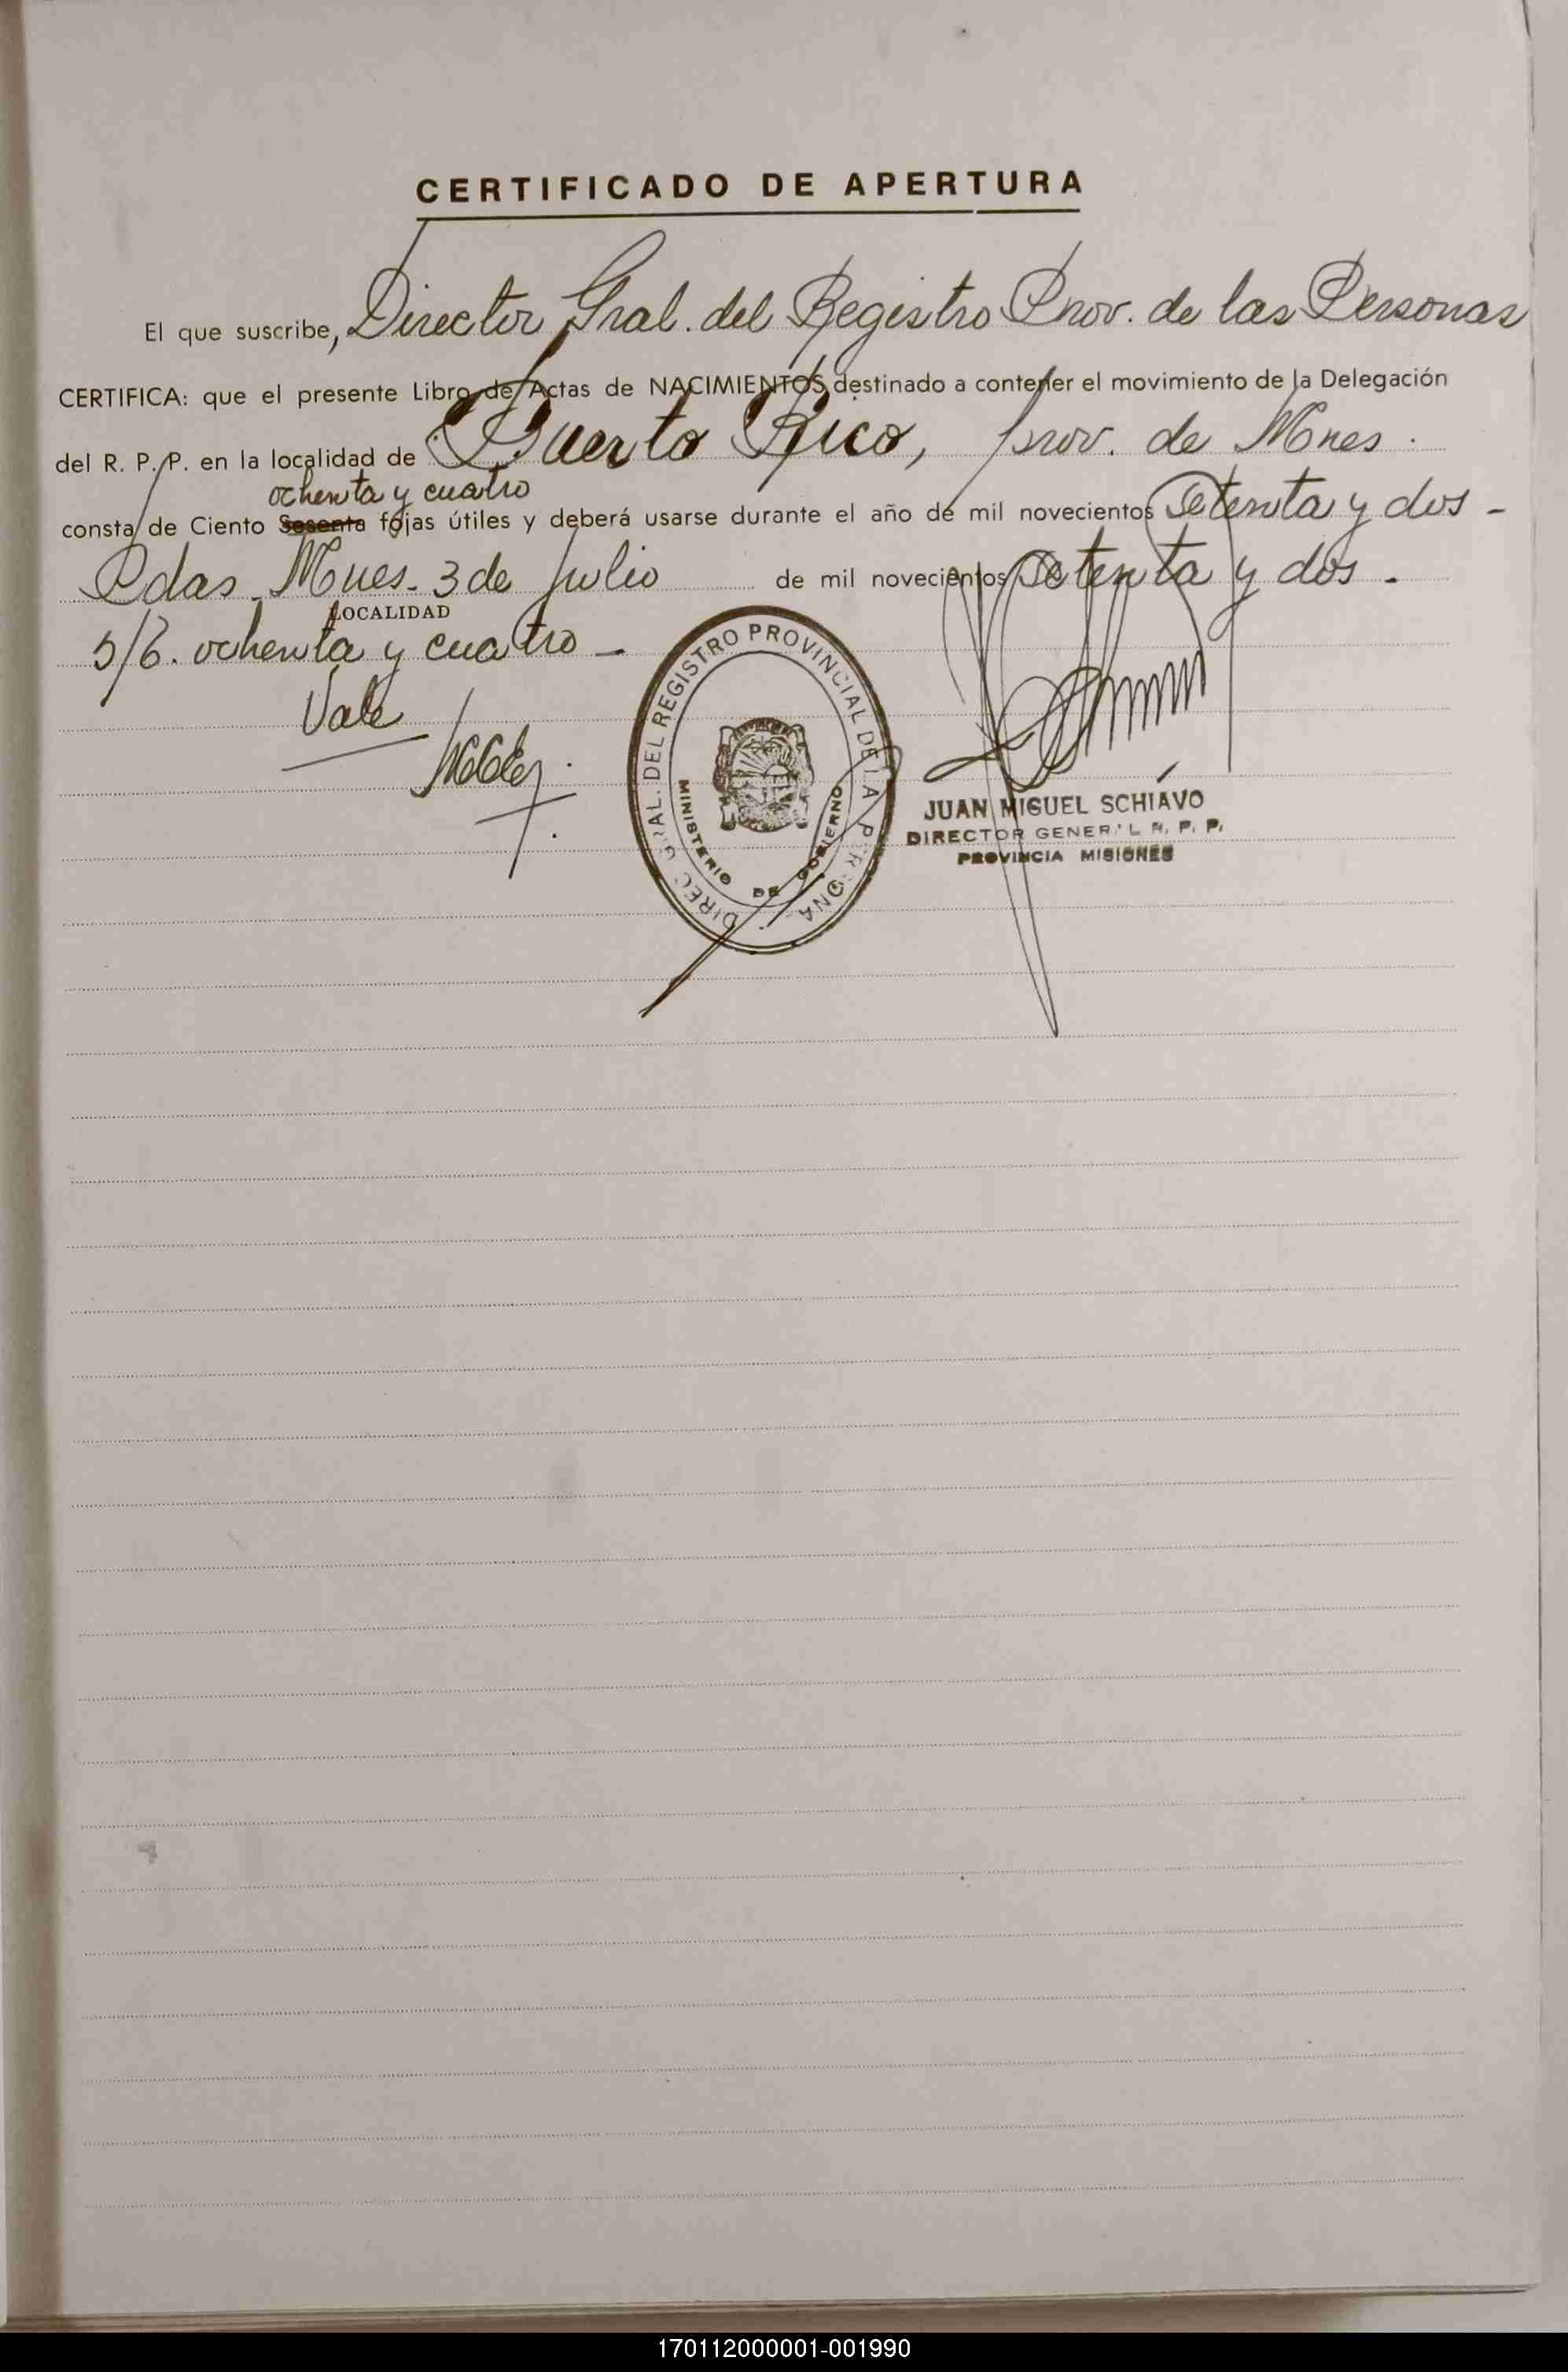 CERTIFICADO DE APERTURA
El que suscribe, Director Gral. del Registro Prov. de las Personas
CERTIFICA: que el presente Libro de Actas de NACIMIENTOS destinado a contener el movimiento de la Delegación
del R. P. P. en la localidad de Puerto Rico, prov. de Mnes.
ochenta y cuatro
consta de Ciento Sesenta fojas útiles y deberá usarse durante el año de mil novecientos Setenta y dos -
Pdas. Mnes. 3 de Julio de mil novecientos Setenta y dos -
LOCALIDAD
S/B. ochenta y cuatro -
Vale
DIREC GRAL. DEL REGISTRO PROVINCIAL DE LA PERSONA
MINISTERIO DE GOBIERNO
JUAN MIGUEL SCHIAVO
DIRECTOR GENERAL R. P. P.
PROVINCIA MISIONES
170112000001-001990